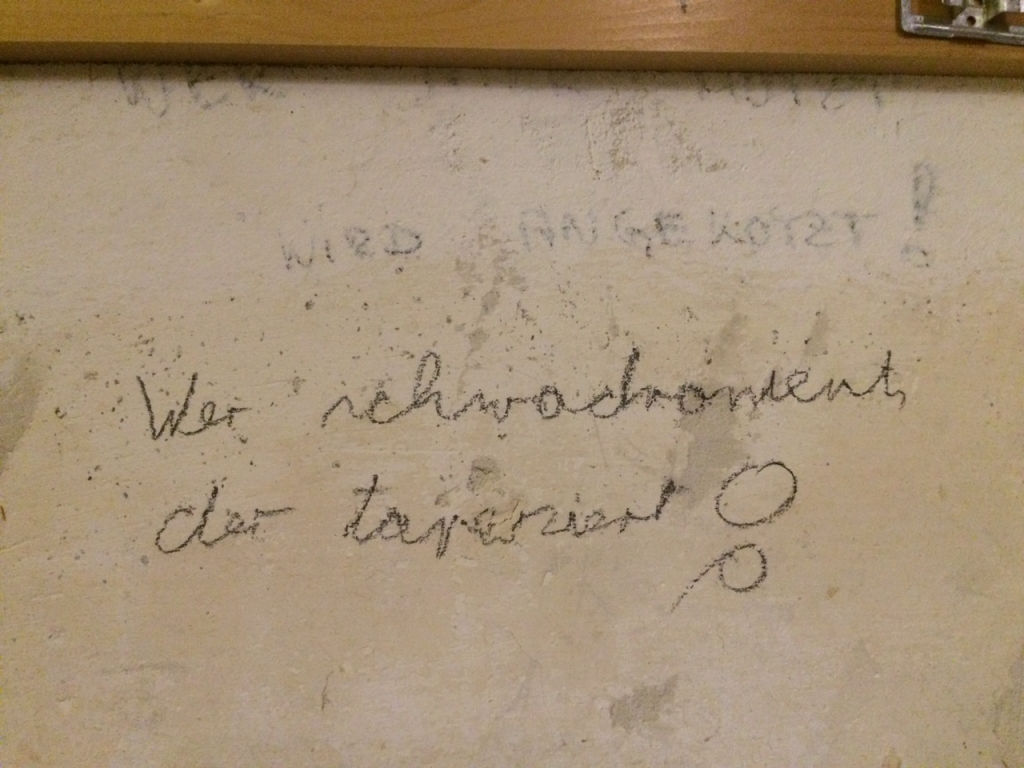 WER
WIRD ANGEKOTZT!
Wer schwadroniert,
der tapeziert!